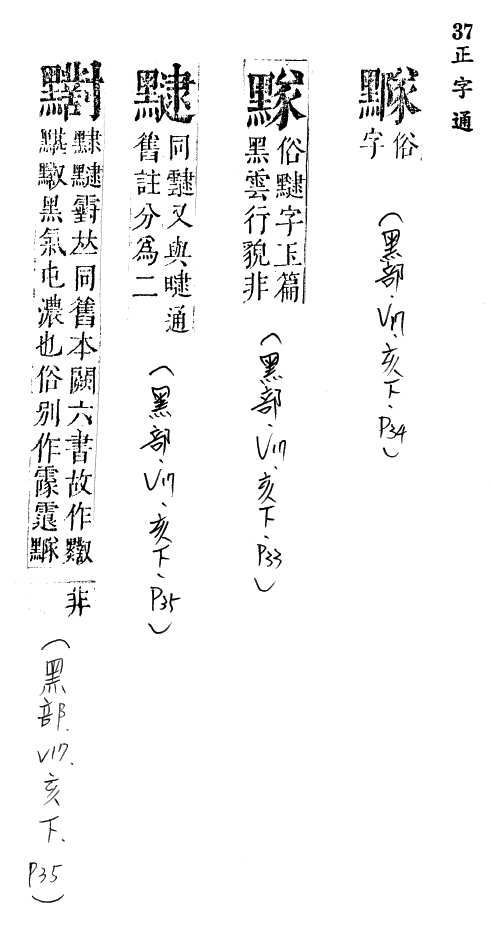 37正字通
俗
字
(黑部、V17、亥下、P34)
俗字玉篇
黑雲行貌非
(黑部、V17、亥下、P33)
同靆又與曃通
舊註分爲二
(黑部、V17、亥下、P35)
霴𠀤同舊本闕六書故作
黑氣屯濃也俗別作
非
(黑部、V17、亥下、P35)